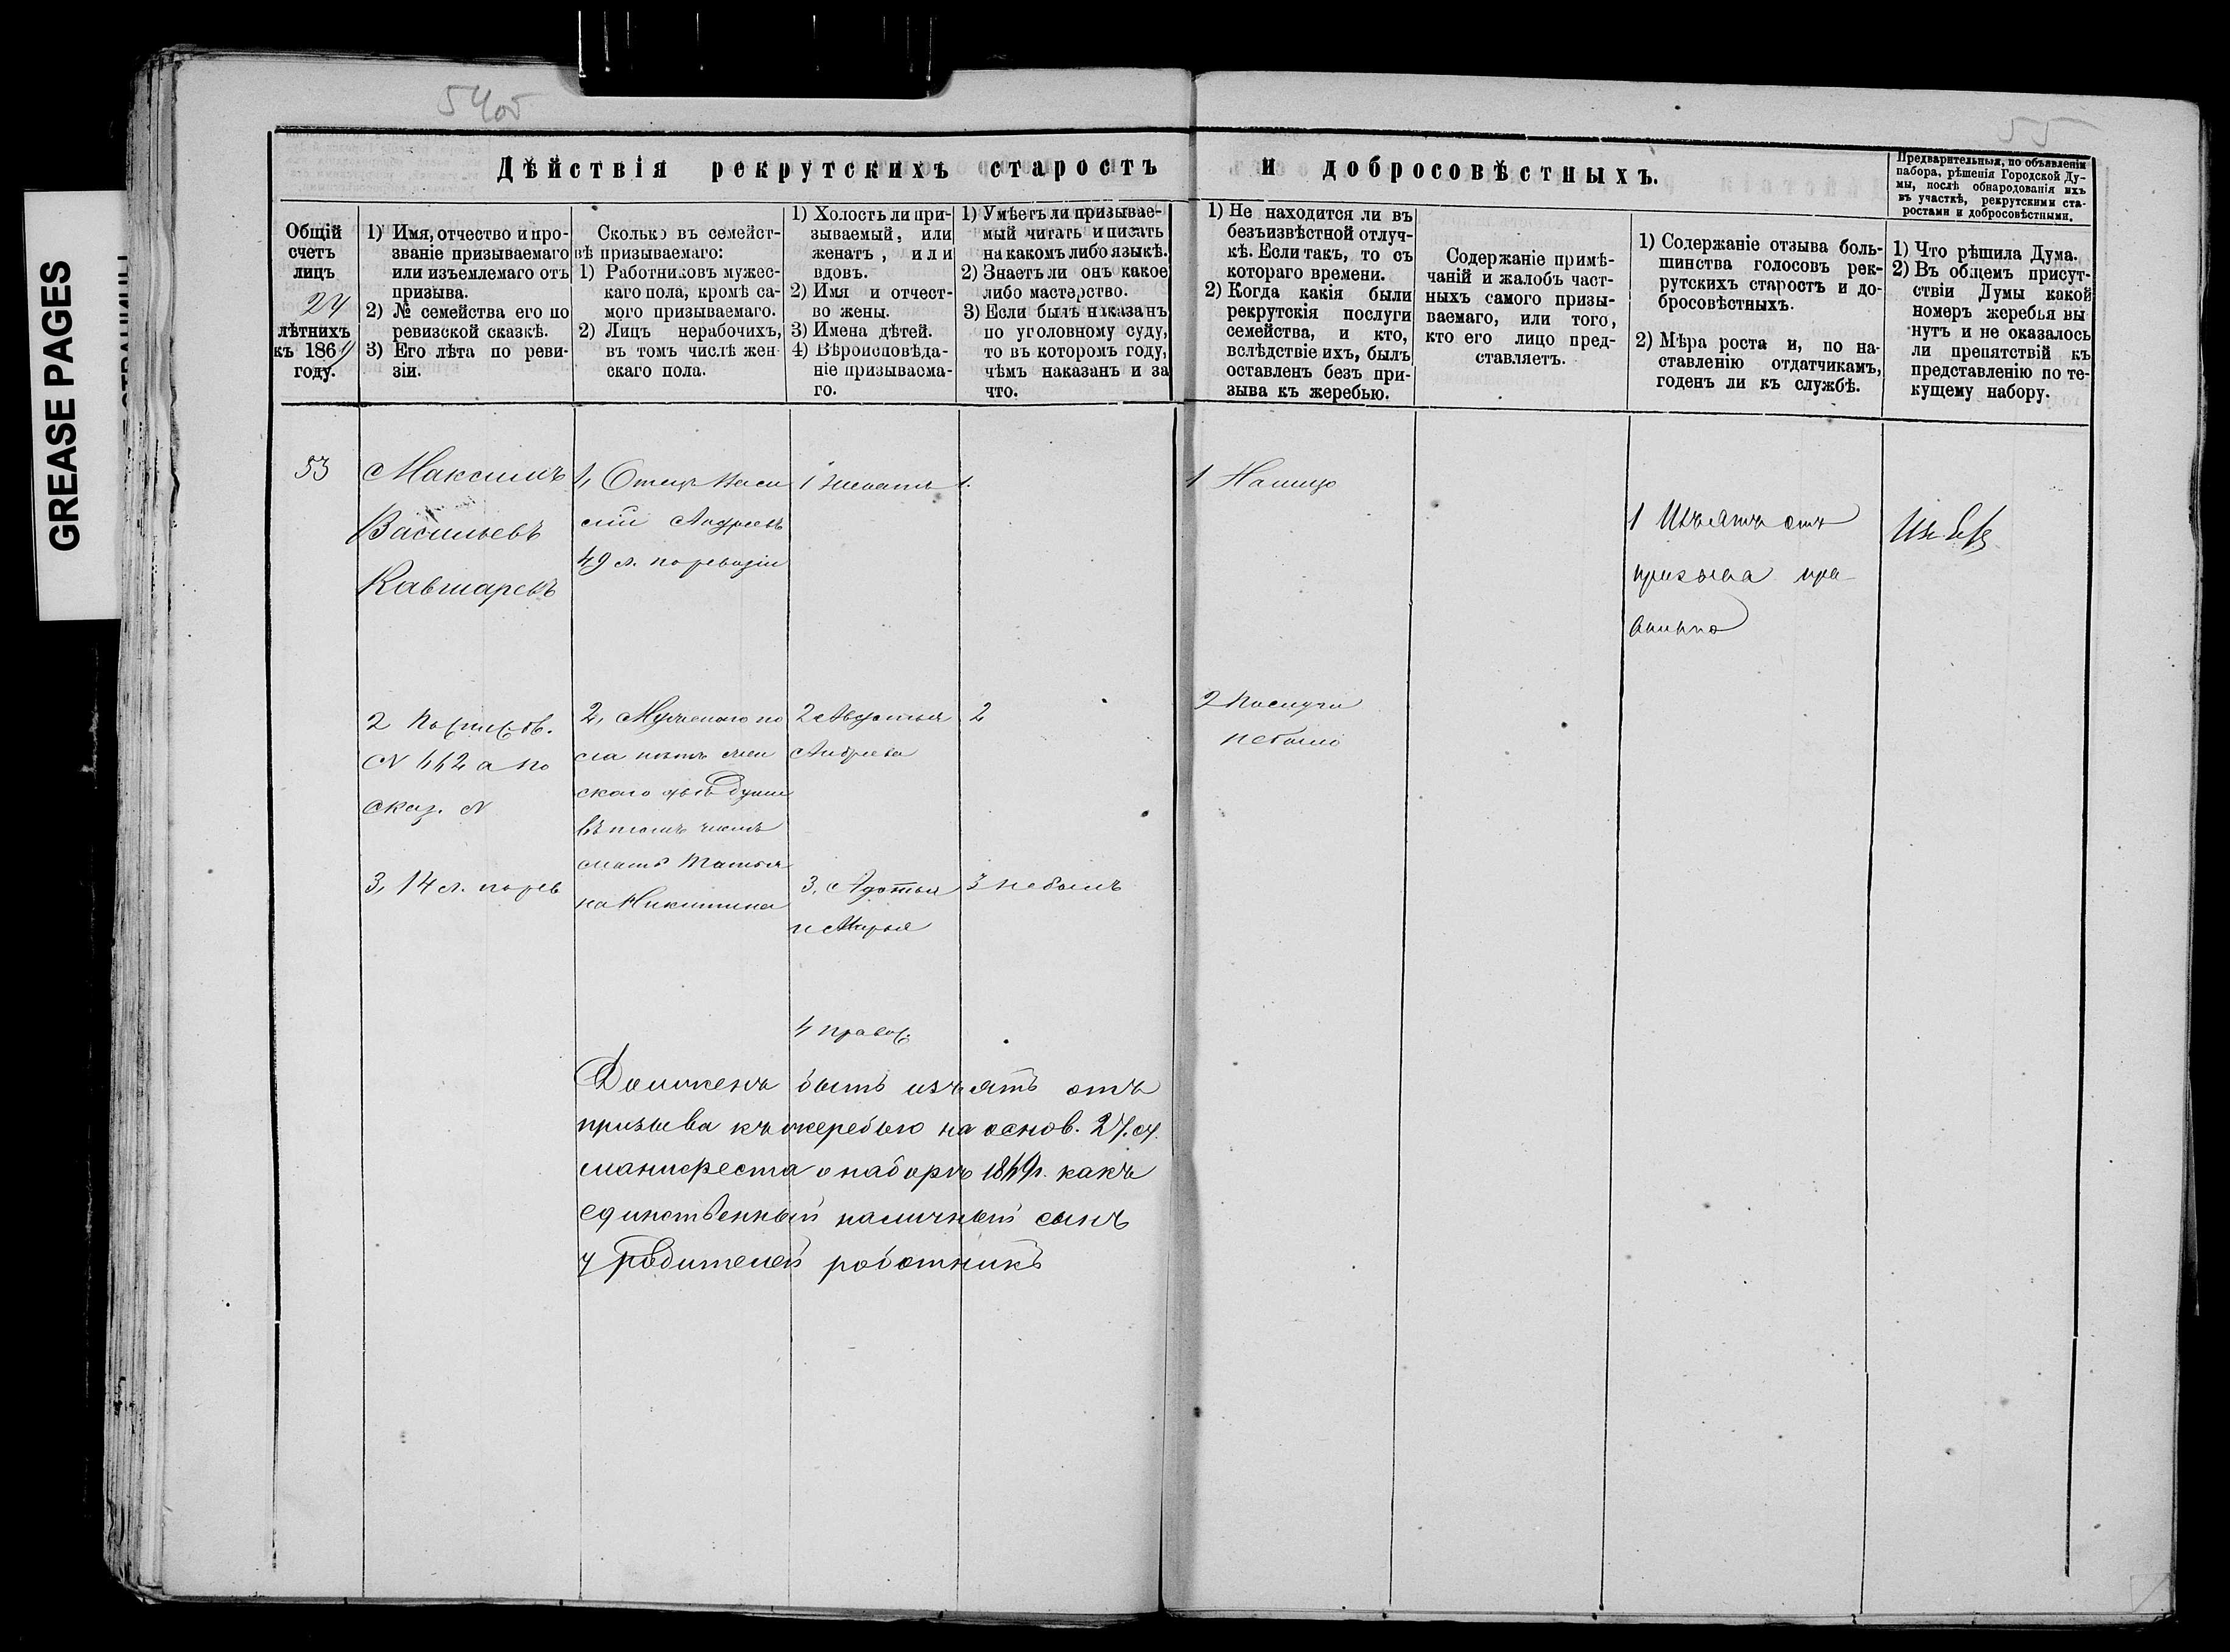 GREASE PAGES
54об
55
Дѣйствія рекрутскихъ старостъ и добросовѣстныхъ.
Предварительныя, по объявленіи
набора, рѣшенія Городской Ду-
мы, послѣ обнародованія ихъ
въ участкѣ, рекрутскими ста-
ростами и добросовѣстными.
Общій
счетъ
лицъ
24
лѣтнихъ
къ 1869
году.
1) Имя, отчество и про-
званіе призываемаго
или изъемлемаго отъ
призыва.
2) № семейства его по
ревизской сказкѣ.
3) Его лѣта по реви-
зіи.
Сколько въ семейст-
вѣ призываемаго:
1) Работниковъ мужес-
каго пола, кромѣ са-
мого призываемаго.
2) Лицъ нерабочихъ,
въ томъ числѣ жен-
скаго пола.
1) Холостъ ли при-
зываемый, или
женатъ, или
вдовъ.
2) Имя и отчест-
во жены.
3) Имена дѣтей.
4) Вѣроисповѣда-
ніе призываема-
го.
1) Умѣетъ ли призывае-
мый читать и писать
на какомъ либо языкѣ.
2) Знаетъ ли онъ какое
либо мастерство.
3) Если былъ наказанъ
по уголовному суду,
то въ которомъ году,
чѣмъ наказанъ и за
что.
1) Не находится ли въ
безъизвѣстной отлуч-
кѣ. Если такъ, то съ
котораго времени.
2) Когда какія были
рекрутскія послуги
семейства, и кто,
вслѣдствіе ихъ, былъ
оставленъ безъ при-
зыва къ жеребью.
Содержаніе примѣ-
чаній и жалобъ част-
ныхъ самого призы-
ваемаго, или того,
кто его лицо пред-
ставляетъ.
1) Содержаніе отзыва боль-
шинства голосовъ рек-
рутскихъ старостъ и до-
бросовѣстныхъ.
2) Мѣра роста и, по на-
ставленію отдатчикамъ,
годенъ ли къ службѣ.
1) Что рѣшила Дума.
2) Въ общемъ присут-
ствіи Думы какой
номеръ жеребья вы
нутъ и не оказалось
ли препятствій къ
представленію по те-
кущему набору.
53
Максимъ
Васильевъ
Кавшаревъ
2 По
N 442 а по
сказ. N
3, 14 л. по рев
1, Отецъ Васи
лій Андреевъ
49 л. по ревизіи
2, Мужескаго по
ла нѣтъ жен
скаго двѣ души
въ томъ числѣ
мать Татья
на Никитина
1 женатъ
2 Авдотья
Андреева
3, Авдотья
и Марья
4 правос.
1.
2
3 небылъ
1 Налицо
2 Послуги
небыло
1 Изъятъ отъ
призыва пра
вильно
Долженъ быть изъятъ отъ
призыва къ жеребью на основ. 27. ст.
манифеста о наборѣ 1869 г. какъ
единственный наличный сынъ
у родителей работникъ